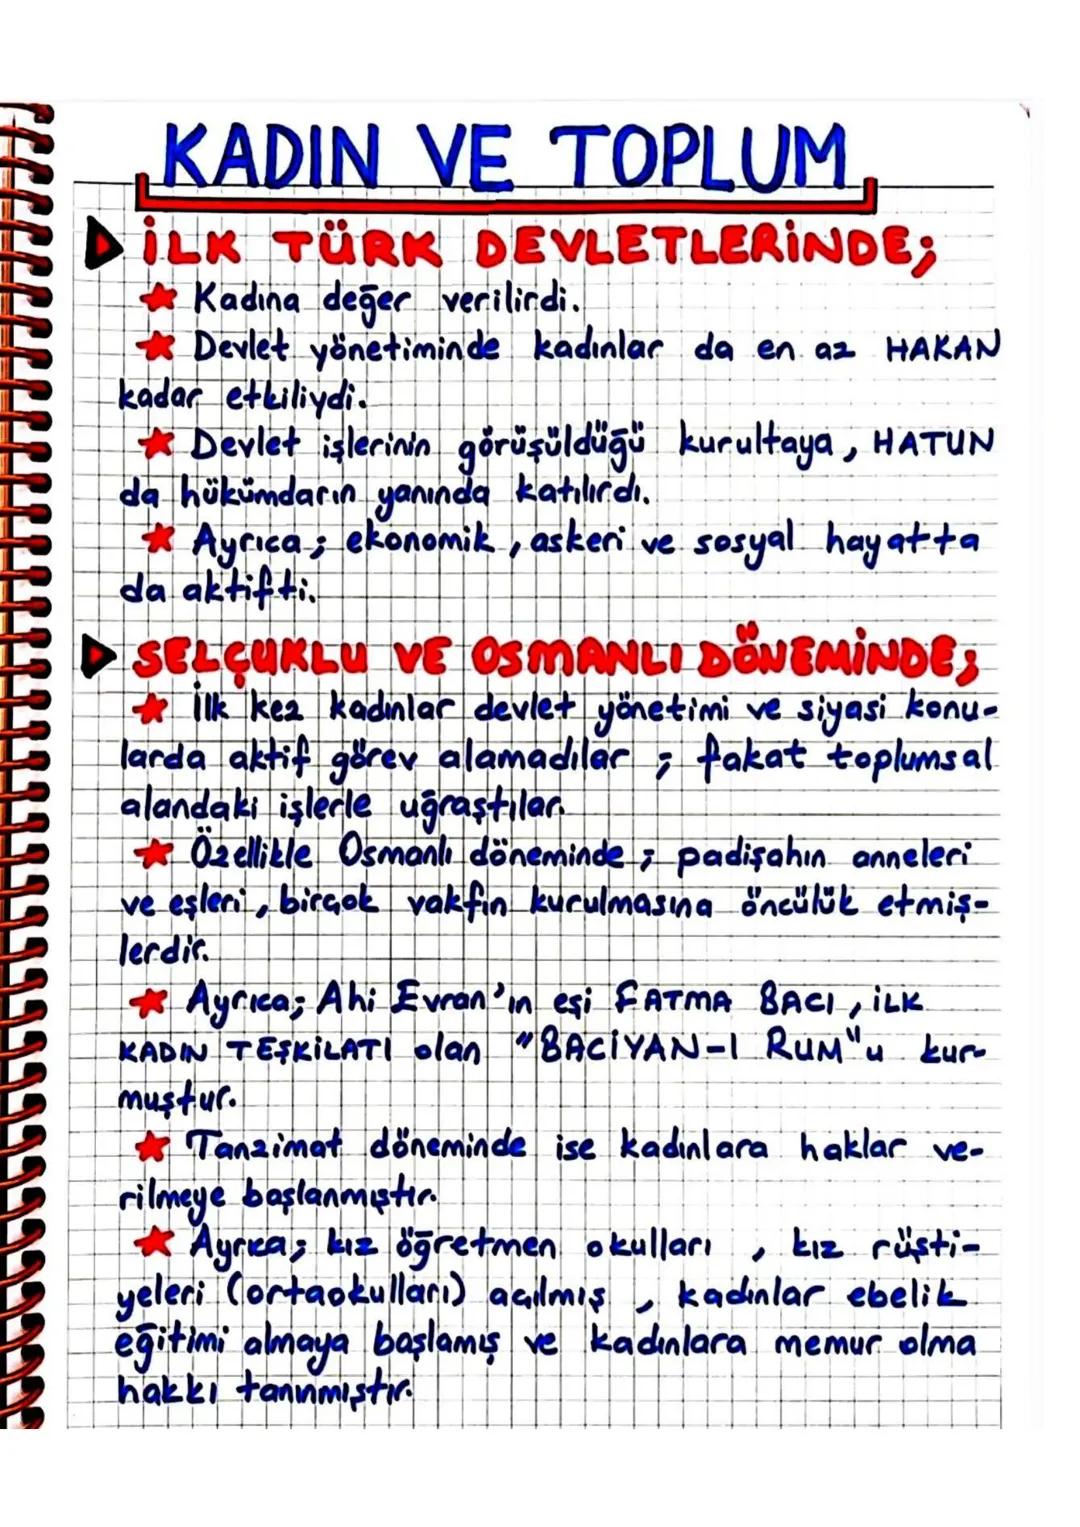 KADIN VE TOPLUM
İLK TÜRK DEVLETLERİNDE;
Kadına değer verilirdi.
Devlet yönetiminde kadınlar da en az HAKAN
kadar etkiliydi.
Devlet işlerinin görüşüldüğü kurultaya, HATUN
da hükümdarın yanında katılırdı.
Ayrıca; ekonomik, askeri ve sosyal hayatta
da aktifti.
SELÇUKLU VE OSMANLI DÖNEMİNDE;
İlk kez kadınlar devlet yönetimi ve siyasi konu-
larda aktif görev alamadılar; fakat toplumsal
alandaki işlerle uğraştılar.
Özellikle Osmanlı döneminde; padişahın anneleri
ve eşleri, birçok vakfın kurulmasına öncülük etmiş-
lerdir.
Ayrıca; Ahi Evran'ın eşi FATMA BACI, İLK
KADIN TEŞKİLATI olan "BACİYAN-I RUM"u kur-
muştur.
Tanzimat döneminde ise kadınlara haklar ve-
rilmeye başlanmıştır.
Ayrıca; kız öğretmen okulları, kız rüşti-
yeleri (ortaokulları) açılmış, kadınlar ebelik
eğitimi almaya başlamış ve kadınlara memur olma
hakkı tanınmıştır.